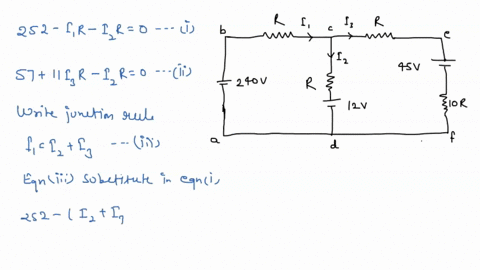 252 - I₁R - I₂R = 0 --- (i)
57 + 11I₃R - I₂R = 0 --- (ii)
Write junction rule
I₁ = I₂ + I₃ --- (iii)
Eqn(iii) substitute in eqn(i)
252 - ( I₂ + I₃
b
R
I₁
c
I₃
R
e
I₂
240V
R
12V
45V
10R
a
d
f